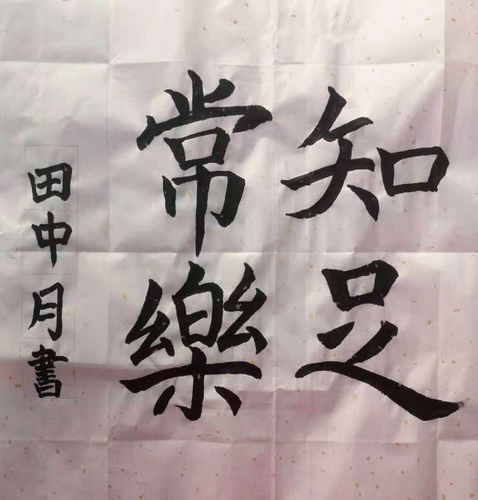 知足
常樂
田中月書